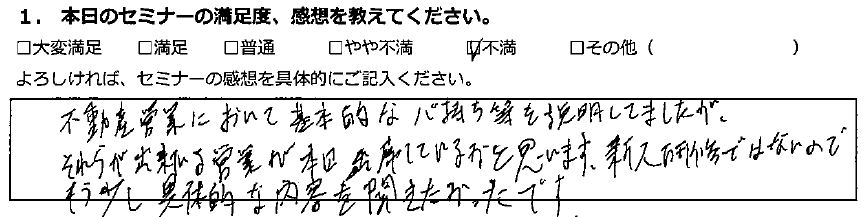 1．本日のセミナーの満足度、感想を教えてください。
□大変満足　□満足　□普通　□やや不満　☑不満　□その他（　　　　　　　）
よろしければ、セミナーの感想を具体的にご記入ください。
不動産営業において基本的な心持ち等を説明してましたが、
それらが出来ている営業が本日出席しているかと思います、新入研修ではないので
もう少し具体的な内容を聞きたかったです